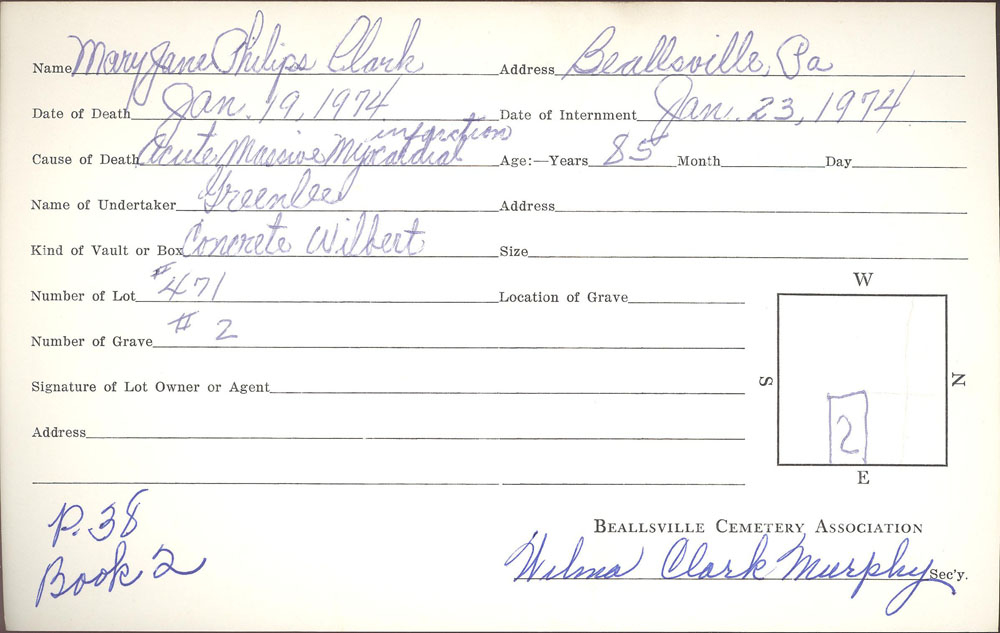 Name Mary Jane Philips Clark Address Beallsville, Pa
Date of Death Jan. 19, 1974 Date of Internment Jan. 23, 1974
Cause of Death Acute Massive Myocardial infarction Age:—Years 85 Month Day
Name of Undertaker Greenlee Address
Kind of Vault or Box Concrete Wilbert Size
Number of Lot #471 Location of Grave
Number of Grave # 2
Signature of Lot Owner or Agent
Address
W
S
N
2
E
P. 38
Book 2
Beallsville Cemetery Association
Wilma Clark Murphy Sec'y.